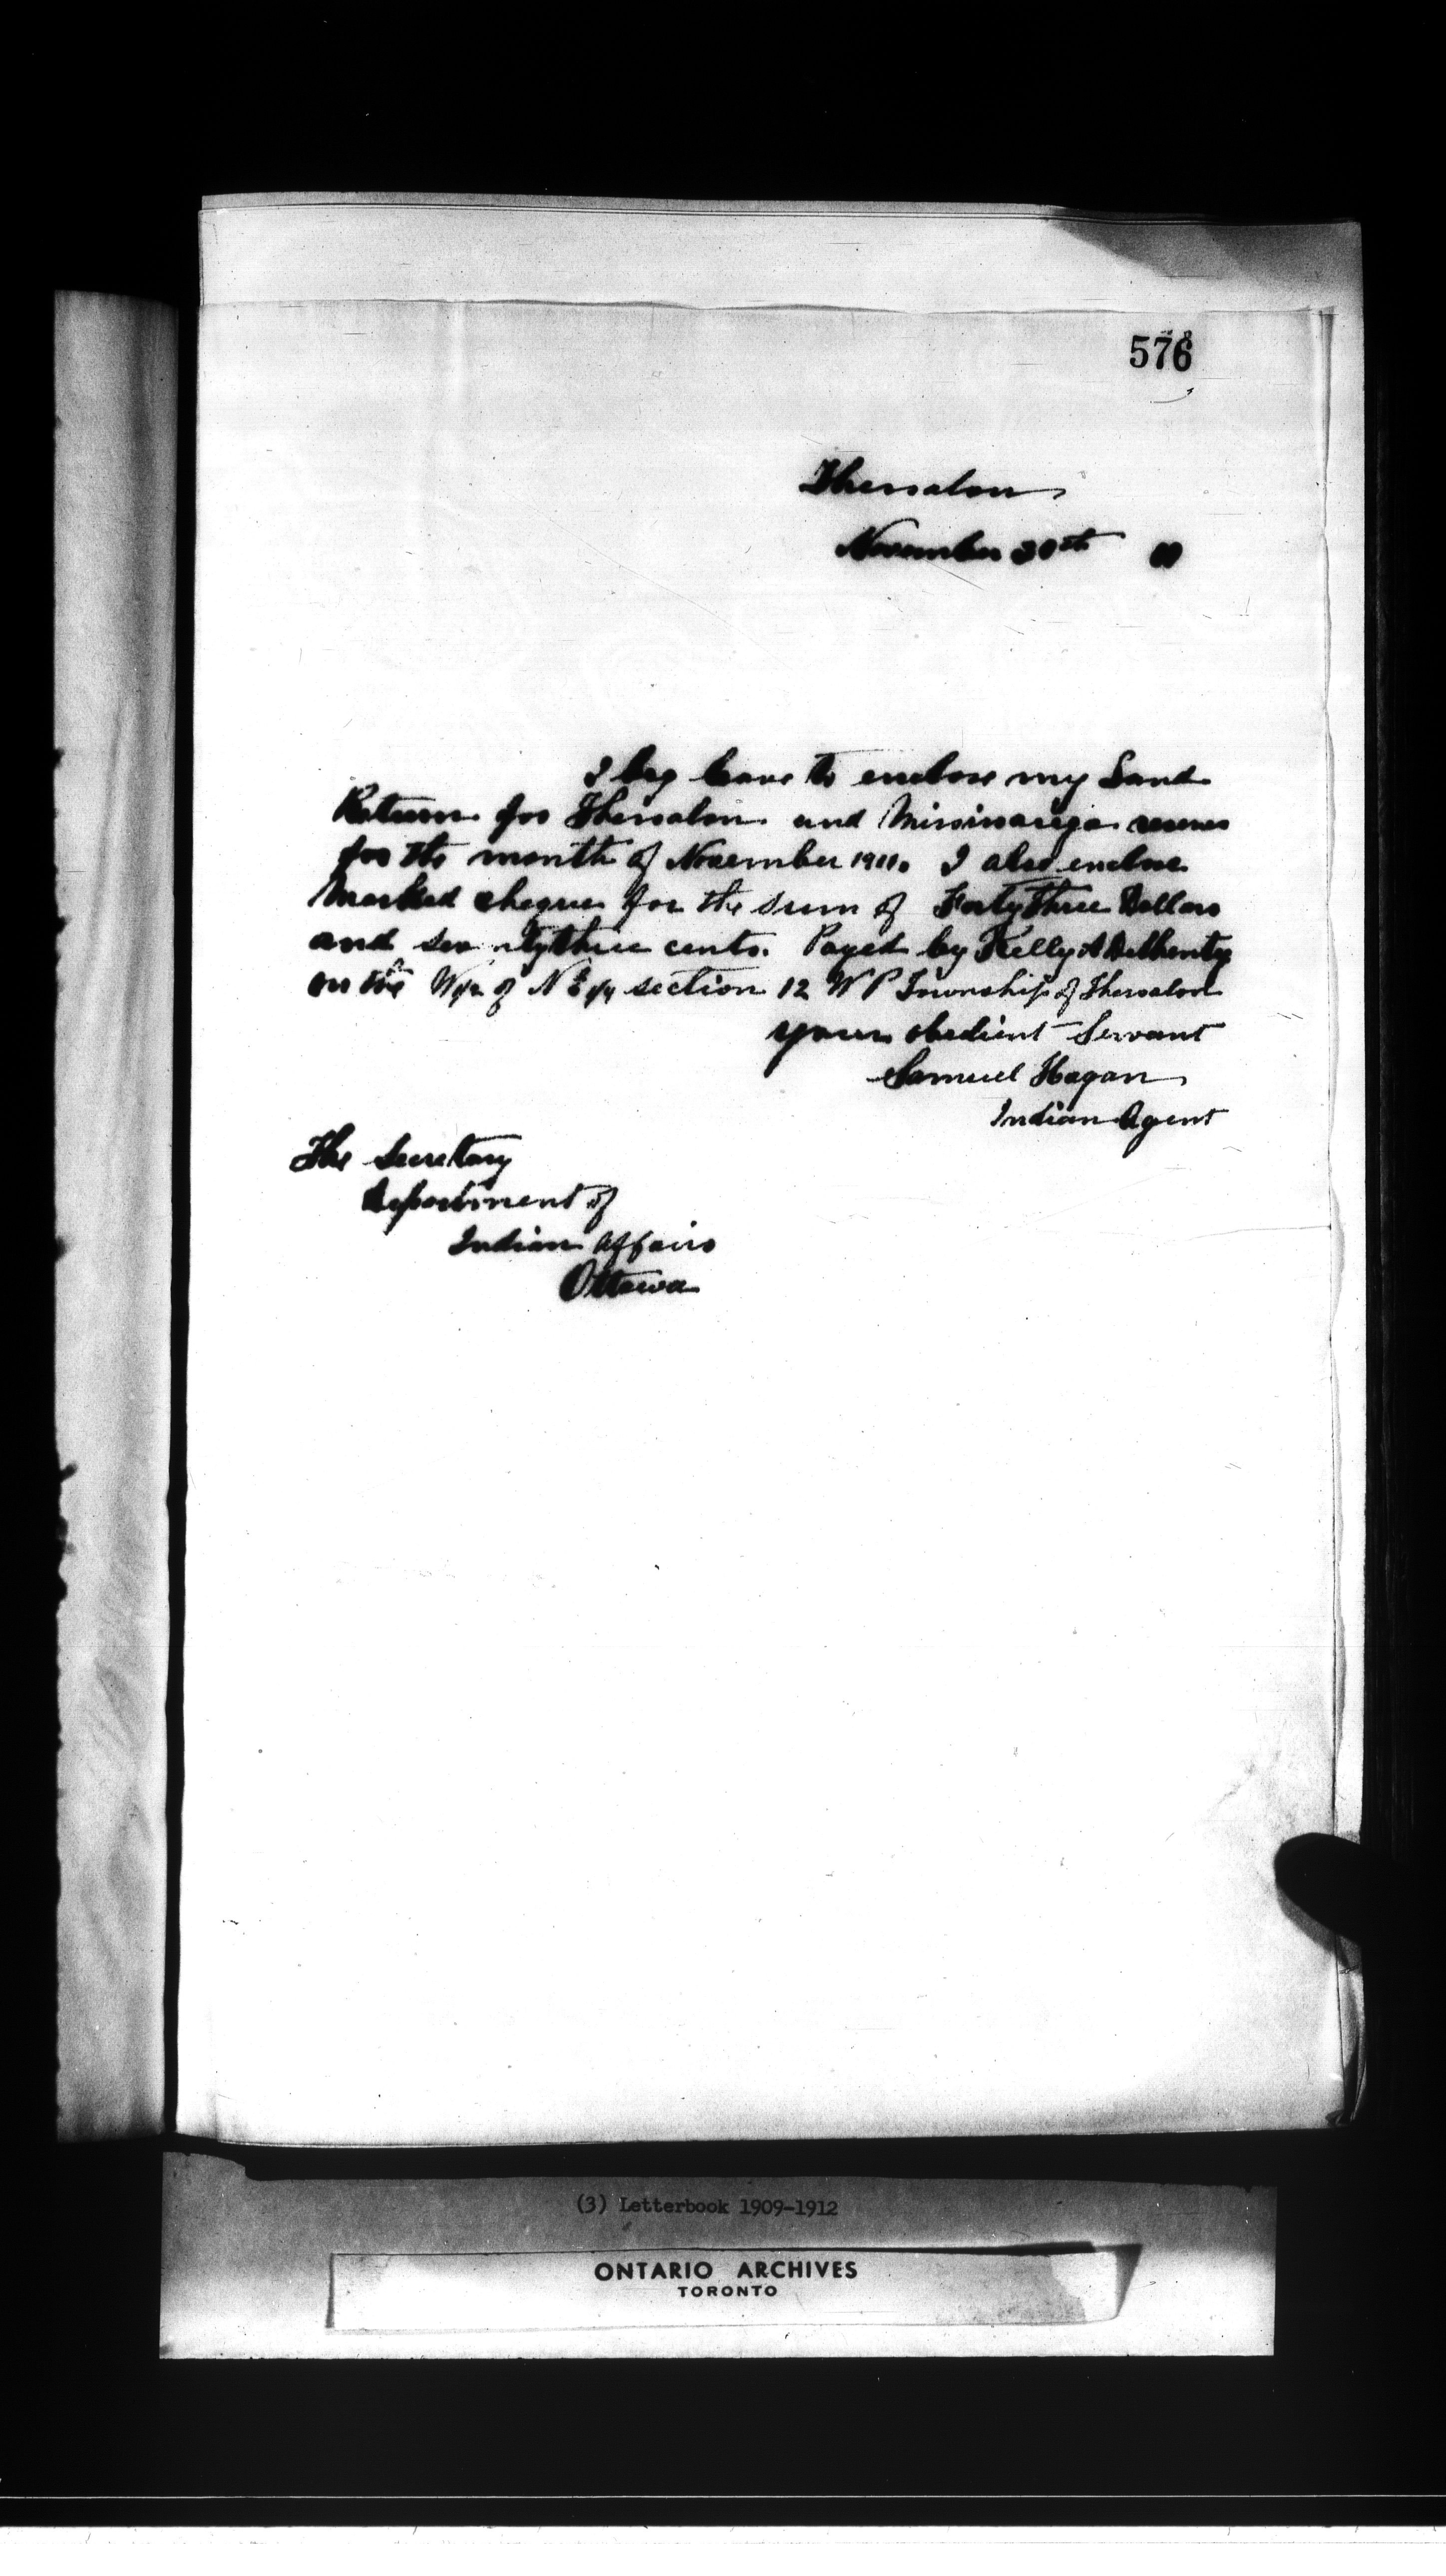 576
Thessalon
November 30th 11
I beg leave to enclose my Land
Return for Thessalon and Mississauga reserves
for the month of November 1911. I also enclose
Marked cheque for the sum of Forty three Dollars
and seventy three cents. Payed by Kelly A
on the W 1/2 of N E 1/4 section 12 W P Township of Thessalon
your obedient Servant
Samuel Hagan
Indian Agent
The Secretary
Department of
Indian Affairs
Ottawa
(3) Letterbook 1909-1912
ONTARIO ARCHIVES
TORONTO